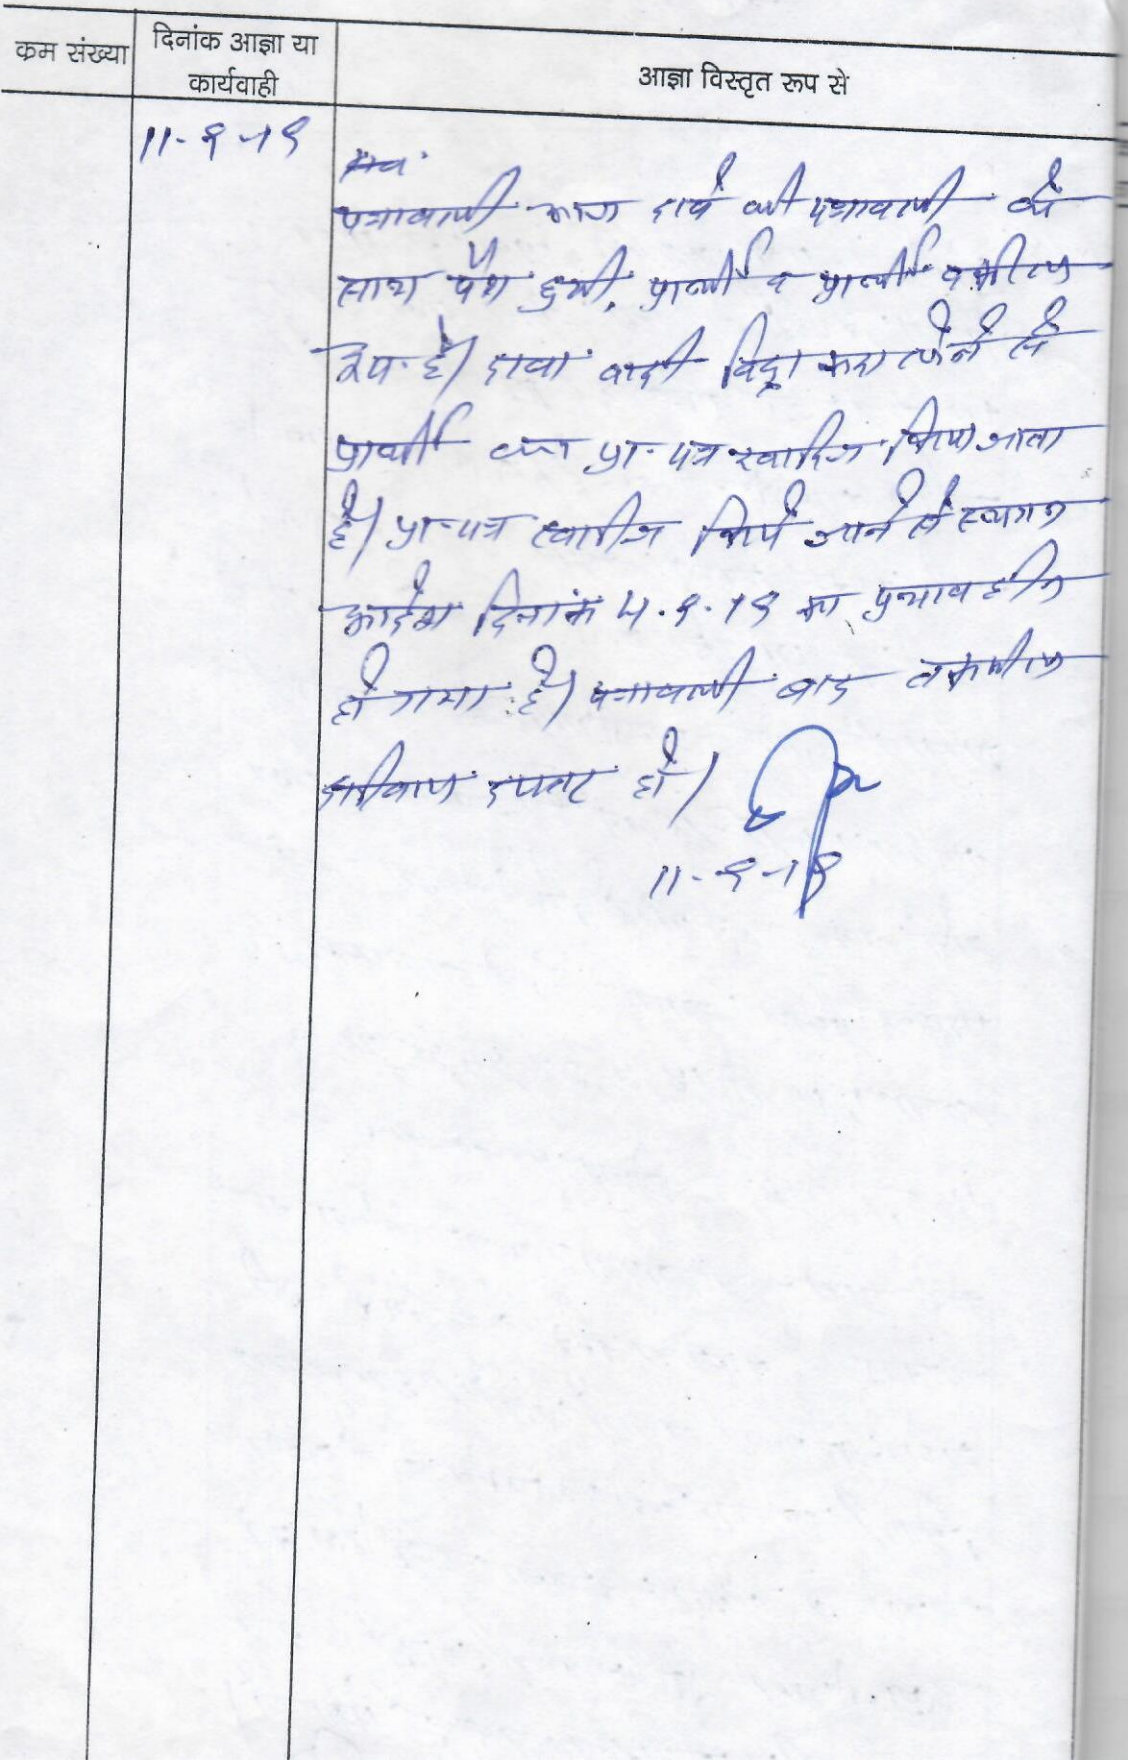 क्रम संख्या
दिनांक आज्ञा या
कार्यवाही
आज्ञा विस्तृत रूप से
11-9-19
पत्रावली आज दावे की पत्रावली के
साथ पेश हुयी, प्रार्थी व प्रार्थी वकील
उप. है। दावा वादी विड्रा करा लेने से
प्रार्थी का प्रा-पत्र खारिज किया जाता
है। प्रा-पत्र खारीज किये जाने से स्थगन
आदेश दिनांक 4.9.19 का प्रभावहीन
हो गया है। पत्रावली बाद तकमील
दाखिल दफ्तर हो।
11-9-19